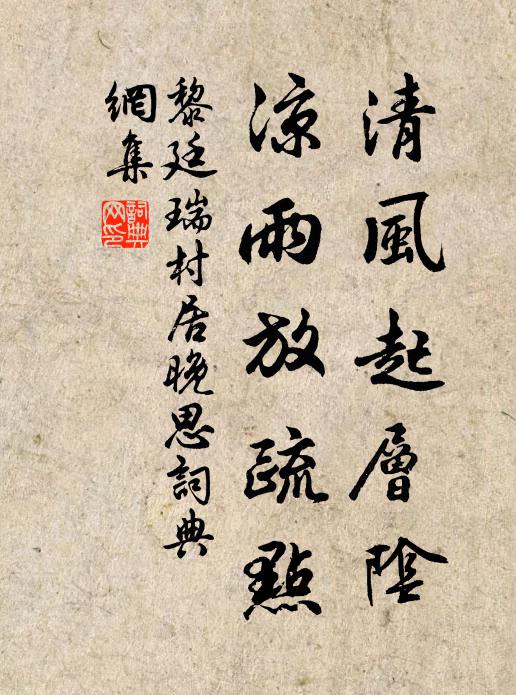 清風起層陰
涼雨放疏點
黎廷瑞村居晚思詞典
網集
詞典
网印